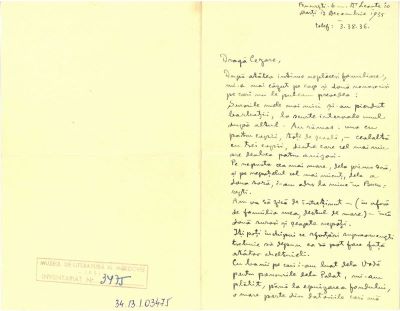 București 6 – Dr. Leonte 10
Marți 17 Decembrie 1935
telef: 3.38.36.
Dragă Cezare,
După atâtea intime neplăceri familiare,
mi-a mai căzut pe cap și două nenorociri
pe cari nu le puteam prevedea:
Surorile mele mai mici și-au pierdut
bărbații, la scurte intervale unul
după altul. Au rămas: una cu
patru copii, toți de școală, – cealaltă
cu trei copii, dintre care cel mai mic
pe
Pe nepoata cea mai mare, dela prima soră,
și pe nepoțelul cel mai mic, dela a
doua soră, i-am adus la mine în Bucu-
rești.
Am va să zică de întreținut – (în afară
de familia mea, destul de mare) – încă
două surori și șeapte nepoți.
Îți poți închipui ce sforțări supraomenești
trebuie să depun ca să pot face față
atâtor cheltuieli.
Cu banii pe cari i-am luat dela Vodă
pentru panourile dela Palat, mi-am
plătit, până la epuizarea fondului,
o mare parte din datoriile cari mă
MUZEUL DE LITERATURĂ AL MOLDOVEI
IAȘI
INVENTARIAT Nr. 3475
34.13 | 03475